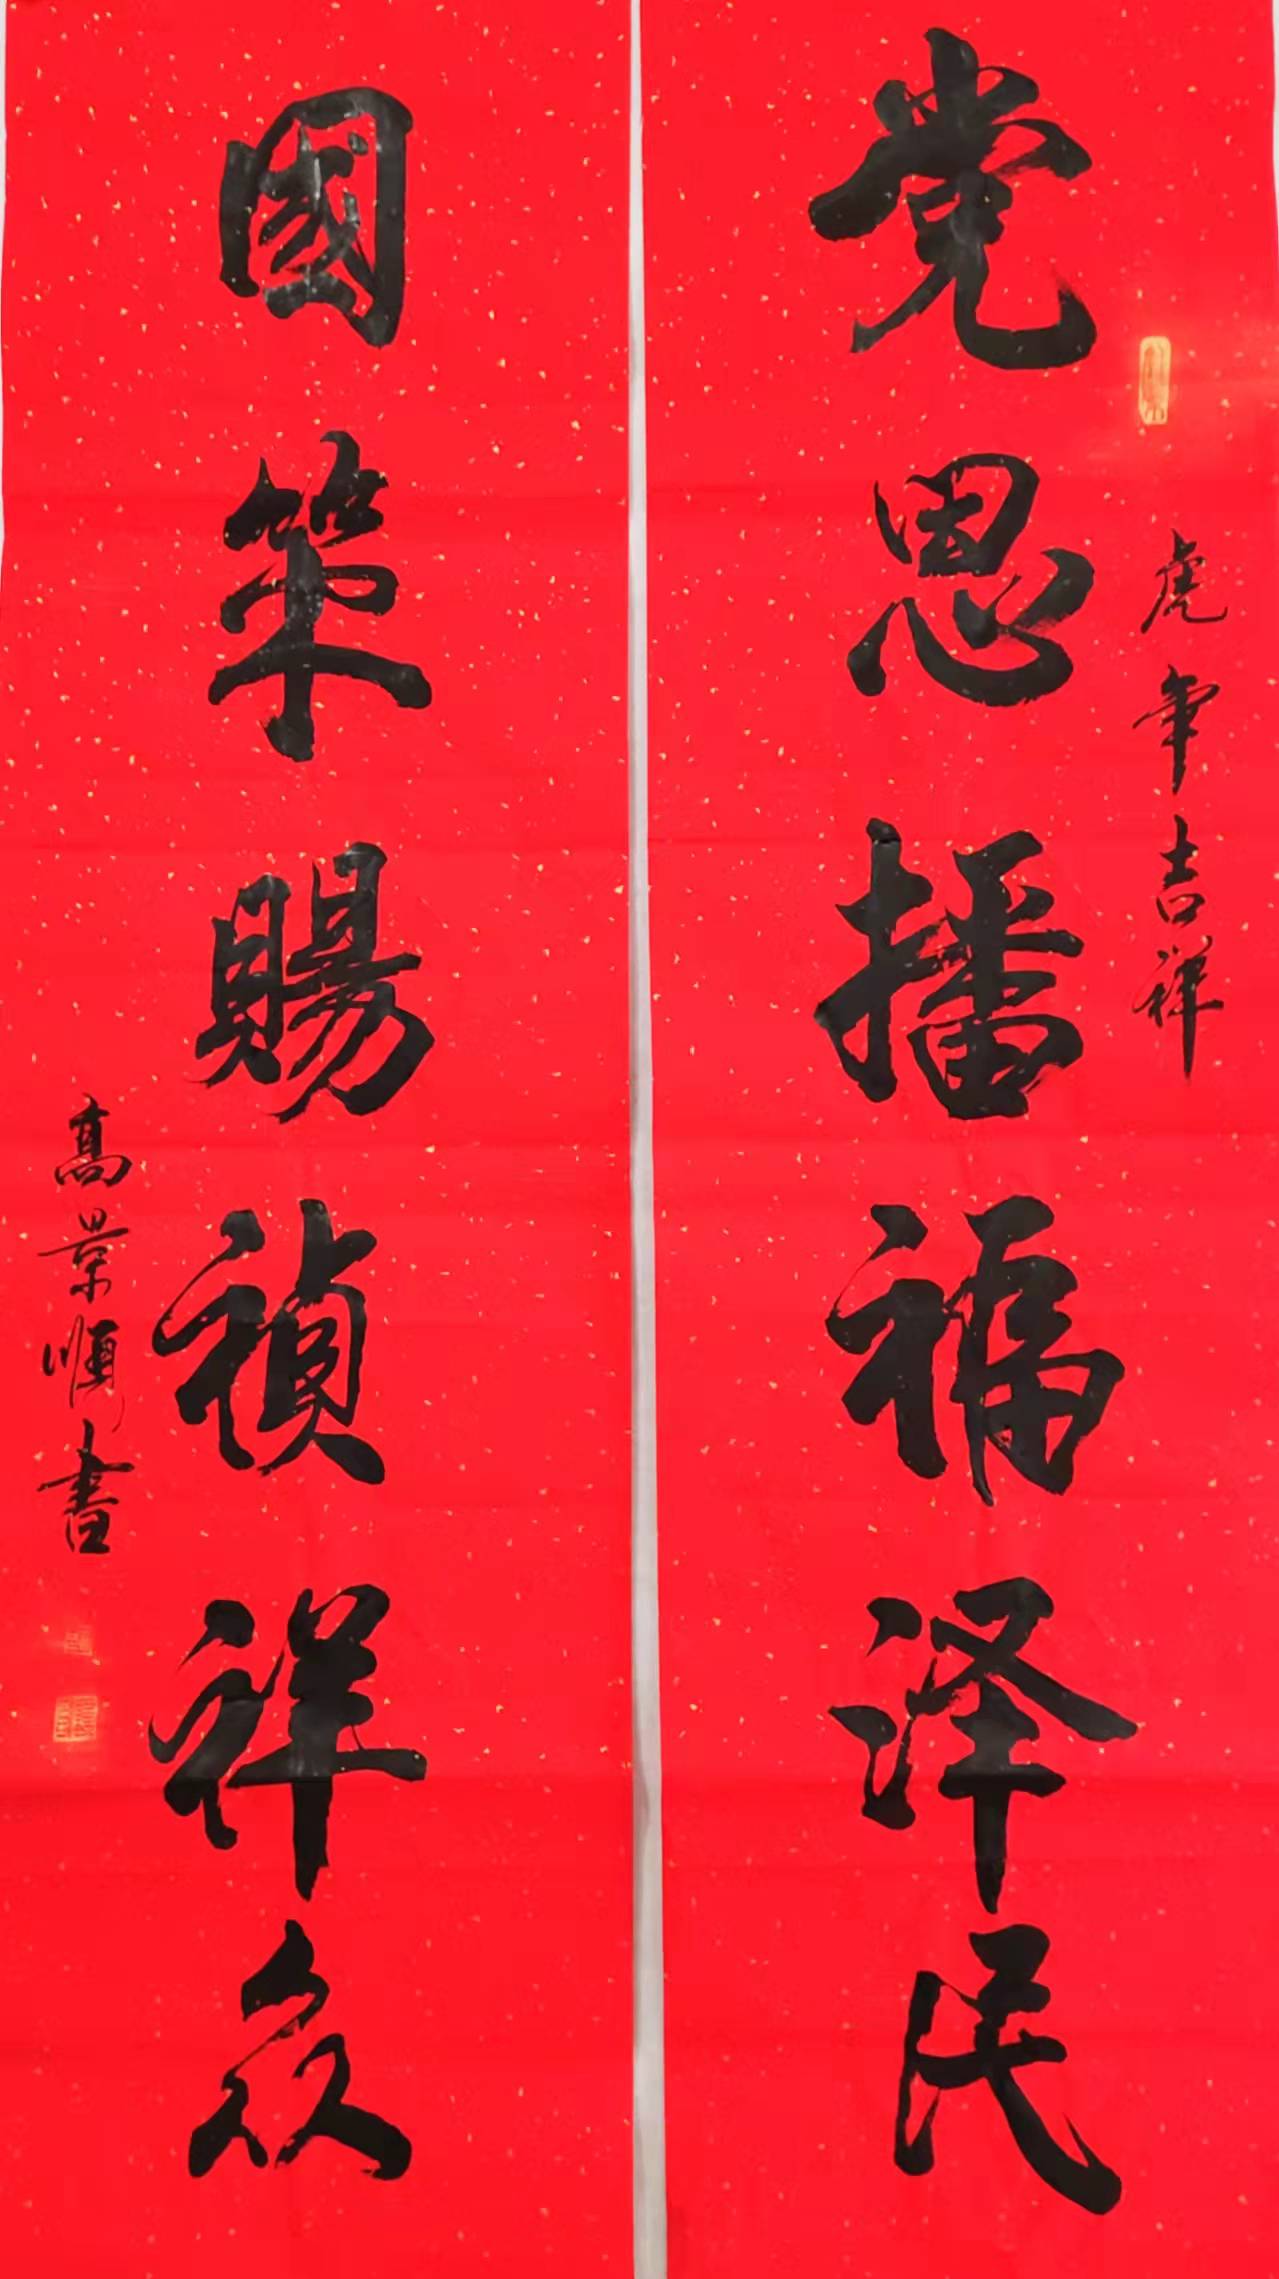 虎年吉祥
党恩播福泽民
國策賜禎祥众
髙景順書